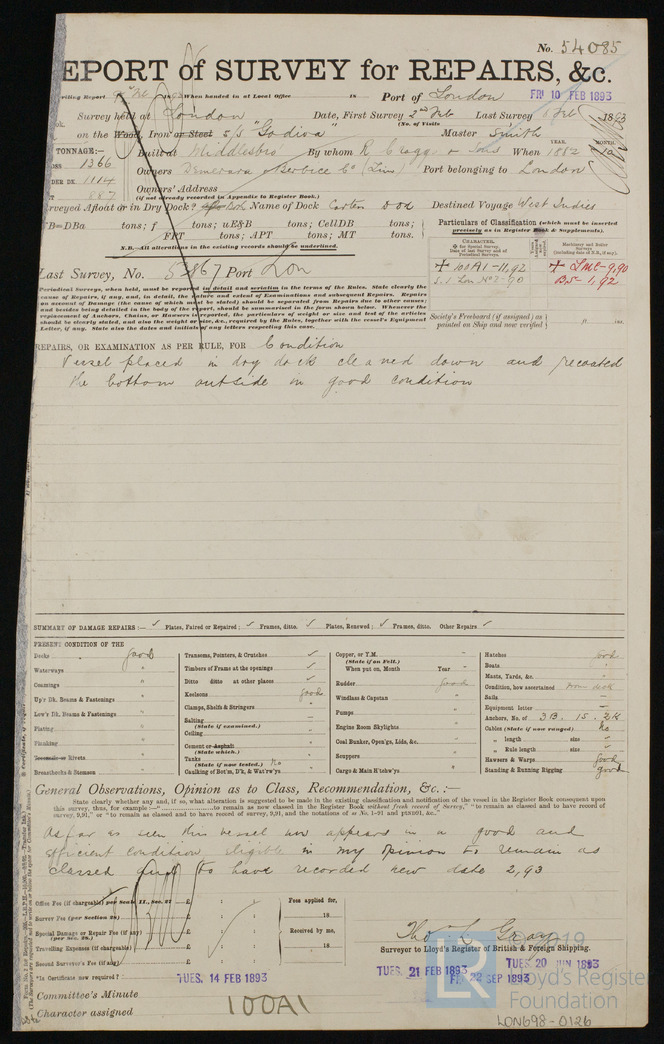 No. 54085
EPORT of SURVEY for REPAIRS, &c.
riting Report When handed in at Local Office 18 Port of London FRI 10 FEB 1893
Survey held at London Date, First Survey 2nd Feb Last Survey 8 Feb 1893
(No. of Visits
on the Wood, Iron or Steel S/S "Godiva" Master Smith
TONNAGE:— Built at Middlesbro By whom R Craggs & Sons When 1882
YEAR. MONTH.
1366
Owners Demerara & Berbice Co (Lim) Port belonging to London
UNDER DK. 1114
Owners' Address
887
(if not already recorded in Appendix to Register Book.)
urveyed Afloat or in Dry Dock? Name of Dock Destined Voyage West Indies
B=DBa tons; f tons; uE&B tons; CellDB tons;
FPT tons; APT tons; MT tons.
N.B.—All alterations in the existing records should be underlined.
Particulars of Classification (which must be inserted
precisely as in Register Book & Supplements).
CHARACTER.
✠ for Special Survey.
Date of last Survey and of
Periodical Surveys.
Machinery and Boiler
Surveys
(including date of N.B., if any).
✠ 100A1-11,92
S.S. Lon. No 2-90
✠ LMC-9,90
BS-1,92
Last Survey, No. Port Lon
Periodical Surveys, when held, must be reported in detail and seriatim in the terms of the Rules. State clearly the
cause of Repairs, if any, and, in detail, the nature and extent of Examinations and subsequent Repairs. Repairs
on account of Damage (the cause of which must be stated) should be separated from Repairs due to other causes;
and besides being detailed in the body of the report, should be summarised in the form shewn below. Whenever the
replacement of Anchors, Chains, or Hawsers is reported, the particulars of weight or size and test of the articles
should be clearly stated, and also the weight or size, &c., required by the Rules, together with the vessel's Equipment
Letter, if any. State also the dates and initials of any letters respecting this case.
Society's Freeboard (if assigned) as
painted on Ship and now verified
ft. ins.
REPAIRS, OR EXAMINATION AS PER RULE, FOR Condition
Vessel placed in dry dock cleaned down and recoated
the bottom outside in good condition
SUMMARY OF DAMAGE REPAIRS:— ✓ Plates, Faired or Repaired; ✓ Frames, ditto. ✓ Plates, Renewed; ✓ Frames, ditto. Other Repairs ✓
PRESENT CONDITION OF THE
Decks good
Waterways "
Coamings "
Up'r Dk. Beams & Fastenings "
Low'r Dk. Beams & Fastenings "
Plating "
Planking
Treenails or Rivets "
Breasthooks & Stemson "
Transoms, Pointers, & Crutches ✓
Timbers of Frame at the openings ✓
Ditto ditto at other places ✓
Keelsons good
Clamps, Shelfs & Stringers "
Salting
(State if examined.)
Ceiling
Cement or Asphalt
(State which.)
Tanks No
(State if now tested.)
Caulking of Bott'm, D'k, & Wat'rw'ys
Copper, or Y.M.
(State if on Felt.)
When put on, Month Year
Rudder good
Windlass & Capstan "
Pumps "
Engine Room Skylights "
Coal Bunker, Open'gs, Lids, &c. "
Scuppers "
Cargo & Main H'tchw'ys "
Hatches good
Boats "
Masts, Yards, &c. "
Condition, how ascertained from deck
Sails
Equipment letter
Anchors, No. of 3B. 1S. 2K
Cables (State if now ranged) No
" length size
" Rule length size
Hawsers & Warps good
Standing & Running Rigging good
General Observations, Opinion as to Class, Recommendation, &c.:—
State clearly whether any and, if so, what alteration is suggested to be made in the existing classification and notification of the vessel in the Register Book consequent upon
this survey, thus, for example:—"to remain as classed in the Register Book without fresh record of Survey," "to remain as classed and to have record of
survey, 9,91," or "to remain as classed and to have record of survey, 9,91, and the notations of ss No. 1-91 and ptND91, &c."
As far as seen this vessel now appears in a good and
efficient condition eligible in my opinion to remain as
classed and to have recorded new date 2,93
Office Fee (if chargeable) per Scale II., Sec. 27 £ : :
Survey Fee (per Section 28) £ : :
Special Damage or Repair Fee (if any) £ : :
(per Sec. 28.)
Travelling Expenses (if chargeable) £ : :
Second Surveyor's Fee (if any) £ : :
Fees applied for,
18
Received by me,
18
Thos L Gray
Surveyor to Lloyd's Register of British & Foreign Shipping.
*Is Certificate now required?
TUES. 14 FEB 1893
TUES. 21 FEB 1893
TUES. 20 JUN 1893
FRI. 22 SEP 1893
Committee's Minute
Character assigned 100A1
LR
2019
Lloyd's Register
Foundation
LON698-0126